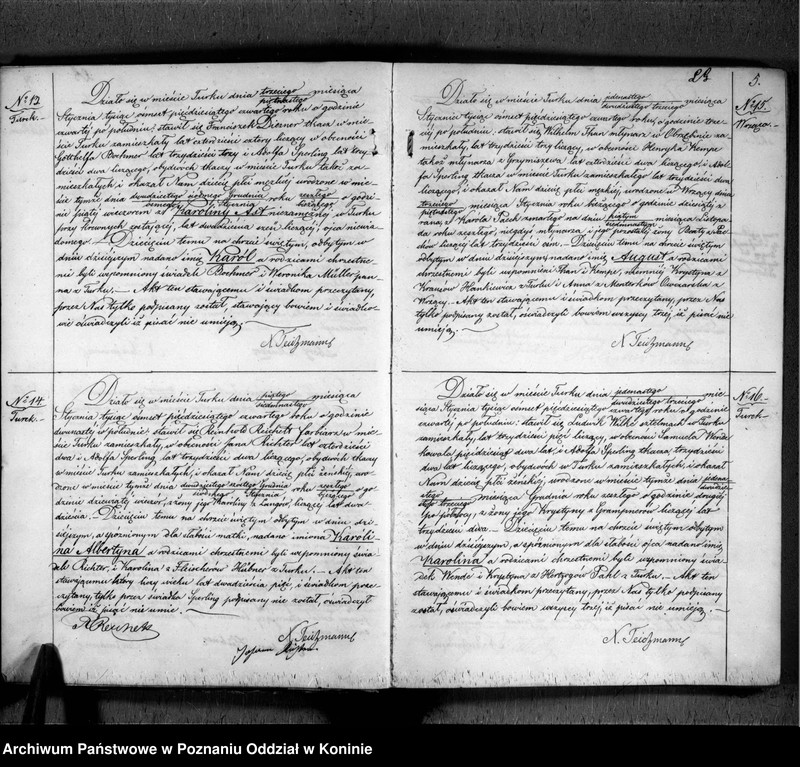 23
5.
No 13
Turek.
Działo się w mieście Turku dnia trzeciego/piętnastego miesiąca
Stycznia tysiąc ośmset pięćdziesiątego czwartego roku o godzinie
czwartej po południu, stawił się Franciszek tkacz w mie-
ście Turku zamieszkały lat czterdzieści cztery liczący w obecności
Gottlieba Bochmer lat trzydzieści trzy i Adolfa Sperling lat trzy-
dzieści dwa liczącego, obydwóch tkaczy w mieście Turku także za-
mieszkałych i okazał Nam dziecię płci męskiej urodzone w mie-
ście tymże dnia dwudziestego siódmego Grudnia/ Stycznia roku zeszłego/bieżącego o godzi-
nie piątej wieczorem z Karoliny Ast niezamężnej w Turku
przy krewnych zostającej, lat dwadzieścia liczącej, ojca niewia-
domego. – Dziecięciu temu na chrzcie świętym, odbytym w
dniu dzisiejszym nadano imię Karol a rodzicami chrzestne-
mi byli wspomniony świadek Bochmer i Weronika Müller pan-
na z Turku. – Akt ten stawającemu i świadkom przeczytany,
przez Nas tylko podpisany został, stawający bowiem i świadko-
wie oświadczyli iż pisać nie umieją.
N. Teichmann
No 14
Turek.
Działo się w mieście Turku dnia piątego/siedmnastego miesiąca
Stycznia tysiąc ośmset pięćdziesiątego czwartego roku o godzinie
dwunastej w południe stawił się Reinhold Reichelt farbiarz w mie-
ście Turku zamieszkały, w obecności Jana Richter lat czterdzieści
dwa i Adolfa Sperling, lat trzydzieści dwa liczącego, obydwóch tkaczy
w mieście Turku zamieszkałych, i okazał Nam dziecię płci żeńskiej, uro-
dzone w mieście tymże dnia dwudziestego szóstego Grudnia/siódmego Stycznia roku zeszłego/bieżącego o go-
dzinie dziewiątej wieczór, z żony jego Karoliny z Langów, liczącej lat dwa-
dzieścia. – Dziecięciu temu na chrzcie świętym odbytym w dniu dzi-
siejszym, a spóźnionym dla słabości matki, nadano imiona Karoli-
na Albertyna a rodzicami chrzestnemi byli wspomniony świa-
dek Richter, i Karolina z Fleischerów Hübner z Turku. – Akt ten
stawającemu który liczy wieku lat dwadzieścia pięć, i świadkom prze-
czytany, tylko przez świadka Sperling podpisany nie został, oświadczył
bowiem iż pisać nie umie.
R. Reichelt
N. Teichmann
Johann Richter.
No 15.
Wrząca.
Działo się w mieście Turku dnia jedenastego/dwudziestego trzeciego miesiąca
Stycznia tysiąc ośmset pięćdziesiątego czwartego roku, o godzinie trze-
ciej po południu, stawił się Wilhelm Han młynarz w Obrzębinie za-
mieszkały, lat trzydzieści trzy liczący, w obecności Henryka Kempe
także młynarza z Grzymiszewa, lat czterdzieści dwa liczącego; i Adol-
fa Sperling tkacza w mieście Turku zamieszkałego lat trzydzieści dwa
liczącego, i okazał Nam dziecię płci męskiej, urodzone w Wrzący dnia
trzeciego/piętnastego miesiąca Stycznia roku bieżącego o godzinie dziesiątej z
rana, z Karola zmarłego na dniu piątym/siedmnastym miesiąca Listopa-
da roku zeszłego, niegdyś młynarza i jego pozostałej żony z
liczącej lat trzydzieści ośm. – Dziecięciu temu na chrzcie świętym
odbytym w dniu dzisiejszym nadano imię August a rodzicami
chrzestnemi byli wspomnieni Han i Kempe, niemniej Krystyna z
Krauzów Hankiewicz z Turku i Anna z Owczarska z
Wrzący. – Akt ten stawającemu i świadkom przeczytany, przez Nas
tylko podpisany został, oświadczyli bowiem wszyscy trzej, iż pisać nie
umieją.
N. Teichmann
No 16.
Turek.
Działo się w mieście Turku dnia jedenastego/dwudziestego trzeciego mie-
siąca Stycznia tysiąc ośmset pięćdziesiątego czwartego roku o godzinie
czwartej po południu: stawił się Ludwik Wilke w Turku
zamieszkały, lat trzydzieści pięć liczący, w obecności Samuela Wende
kowala pięćdziesiąt dwa lat, i Adolfa Sperling tkacza, trzydzieści
dwa lat liczącego, obydwóch w Turku zamieszkałych, i okazał
Nam dziecię płci żeńskiej, urodzone w mieście tymże dnia jedena-
stego/dwudziestego trzeciego miesiąca Grudnia roku zeszłego o godzinie drugiej
po północy, z żony jego Krystyny z liczącej lat
trzydzieści dwa. – Dziecięciu temu na chrzcie świętym odbytym
w dniu dzisiejszym, a spóźnionym dla słabości ojca nadano imię
Karolina a rodzicami chrzestnemi byli wspomniony świa-
dek Wende i Krystyna z Hertzogów Pahl z Turku. – Akt ten
stawającemu i świadkom przeczytany, przez Nas tylko podpisany
został, oświadczyli bowiem wszyscy trzej, iż pisać nie umieją.
N. Teichmann
Archiwum Państwowe w Poznaniu Oddział w Koninie